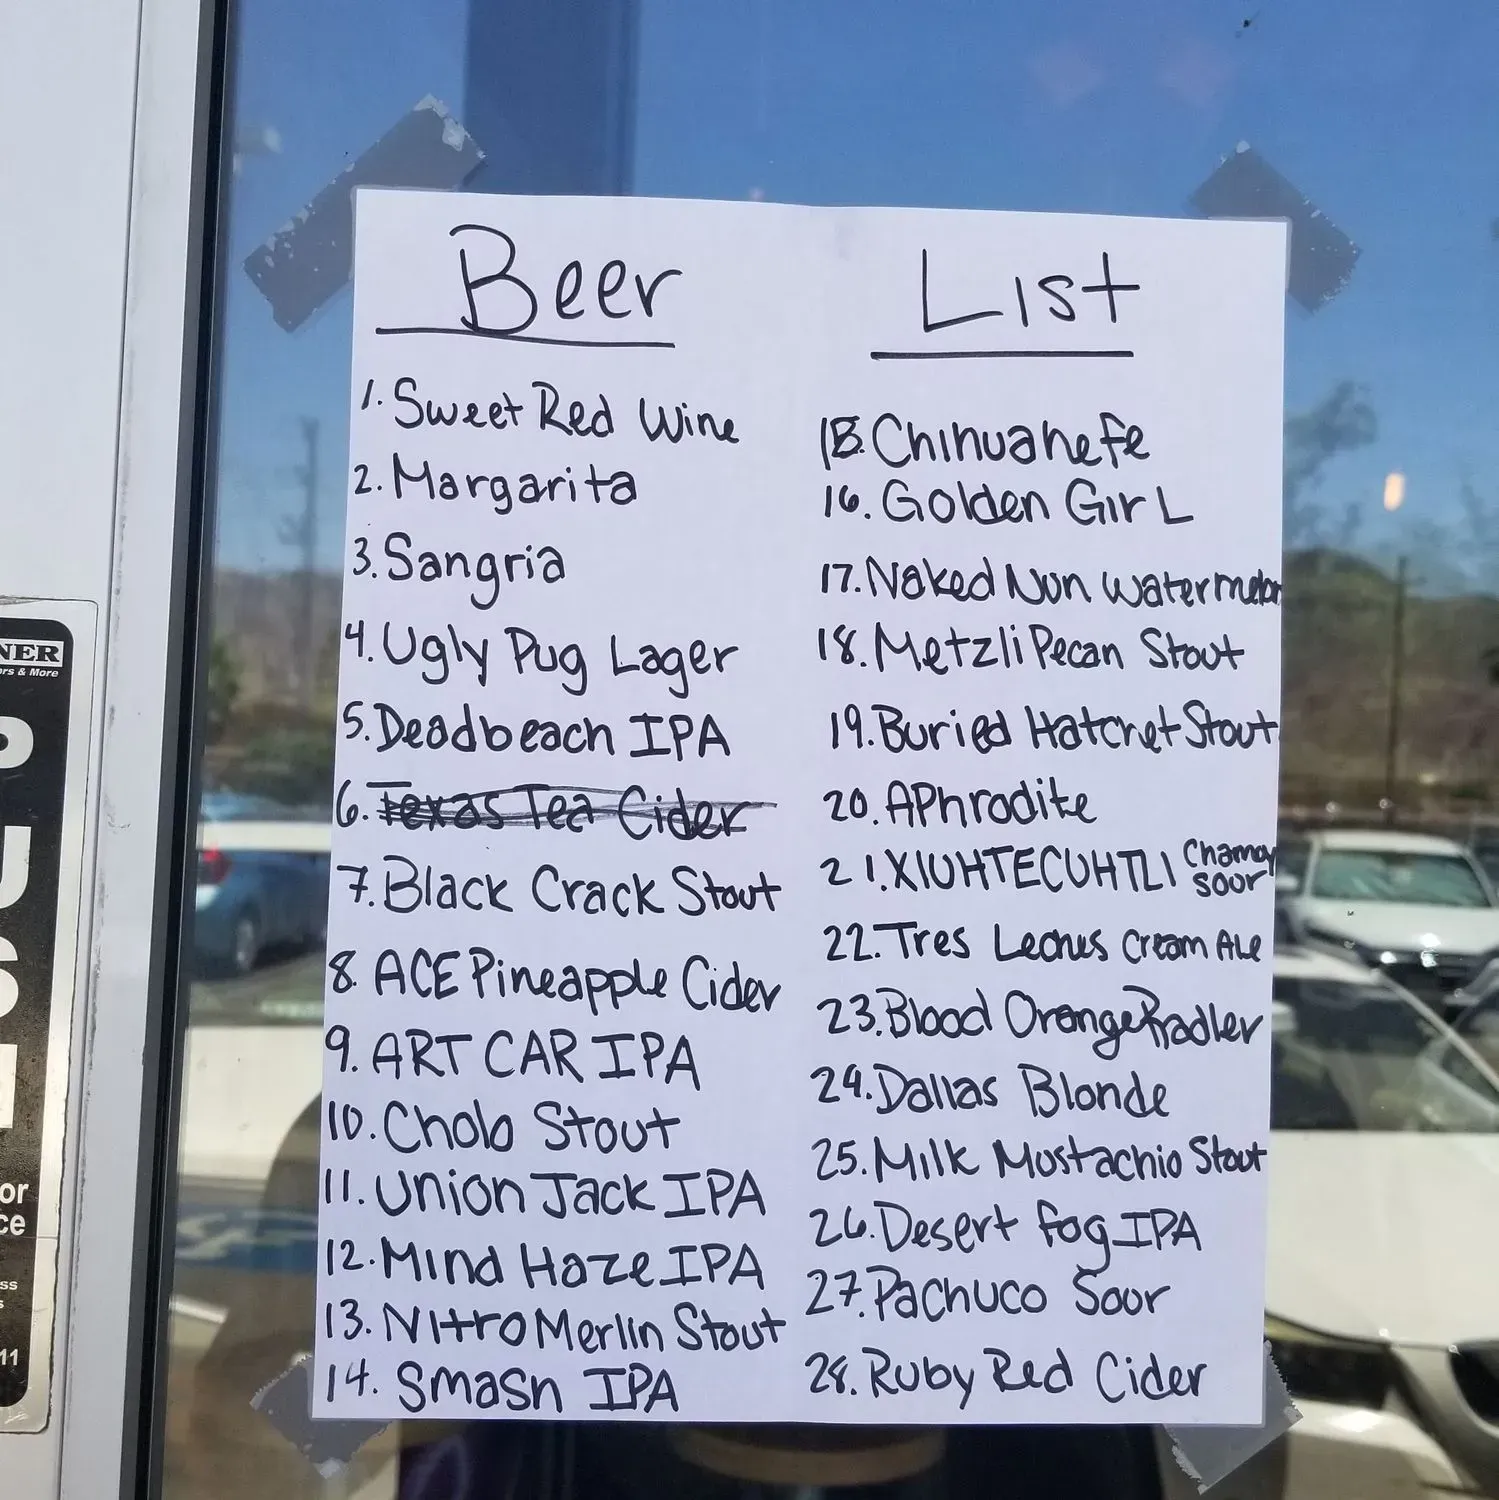 Beer List
1. Sweet Red Wine
2. Margarita
3. Sangria
4. Ugly Pug Lager
5. Deadbeach IPA
6. Texas Tea Cider
7. Black Crack Stout
8. ACE Pineapple Cider
9. ART CAR IPA
10. Cholo Stout
11. Union Jack IPA
12. Mind Haze IPA
13. Nitro Merlin Stout
14. Smash IPA
15. Chihuahefe
16. Golden Girl
17. Naked Nun Watermelon
18. Metzli Pecan Stout
19. Buried Hatchet Stout
20. APhrodite
21. XIUHTECUHTLI Chamoy Sour
22. Tres Leches Cream Ale
23. Blood Orange Radler
24. Dallas Blonde
25. Milk Mustachio Stout
26. Desert Fog IPA
27. Pachuco Sour
28. Ruby Red Cider
NER
rs & More
P
U
S
or
ce
ss
s
11